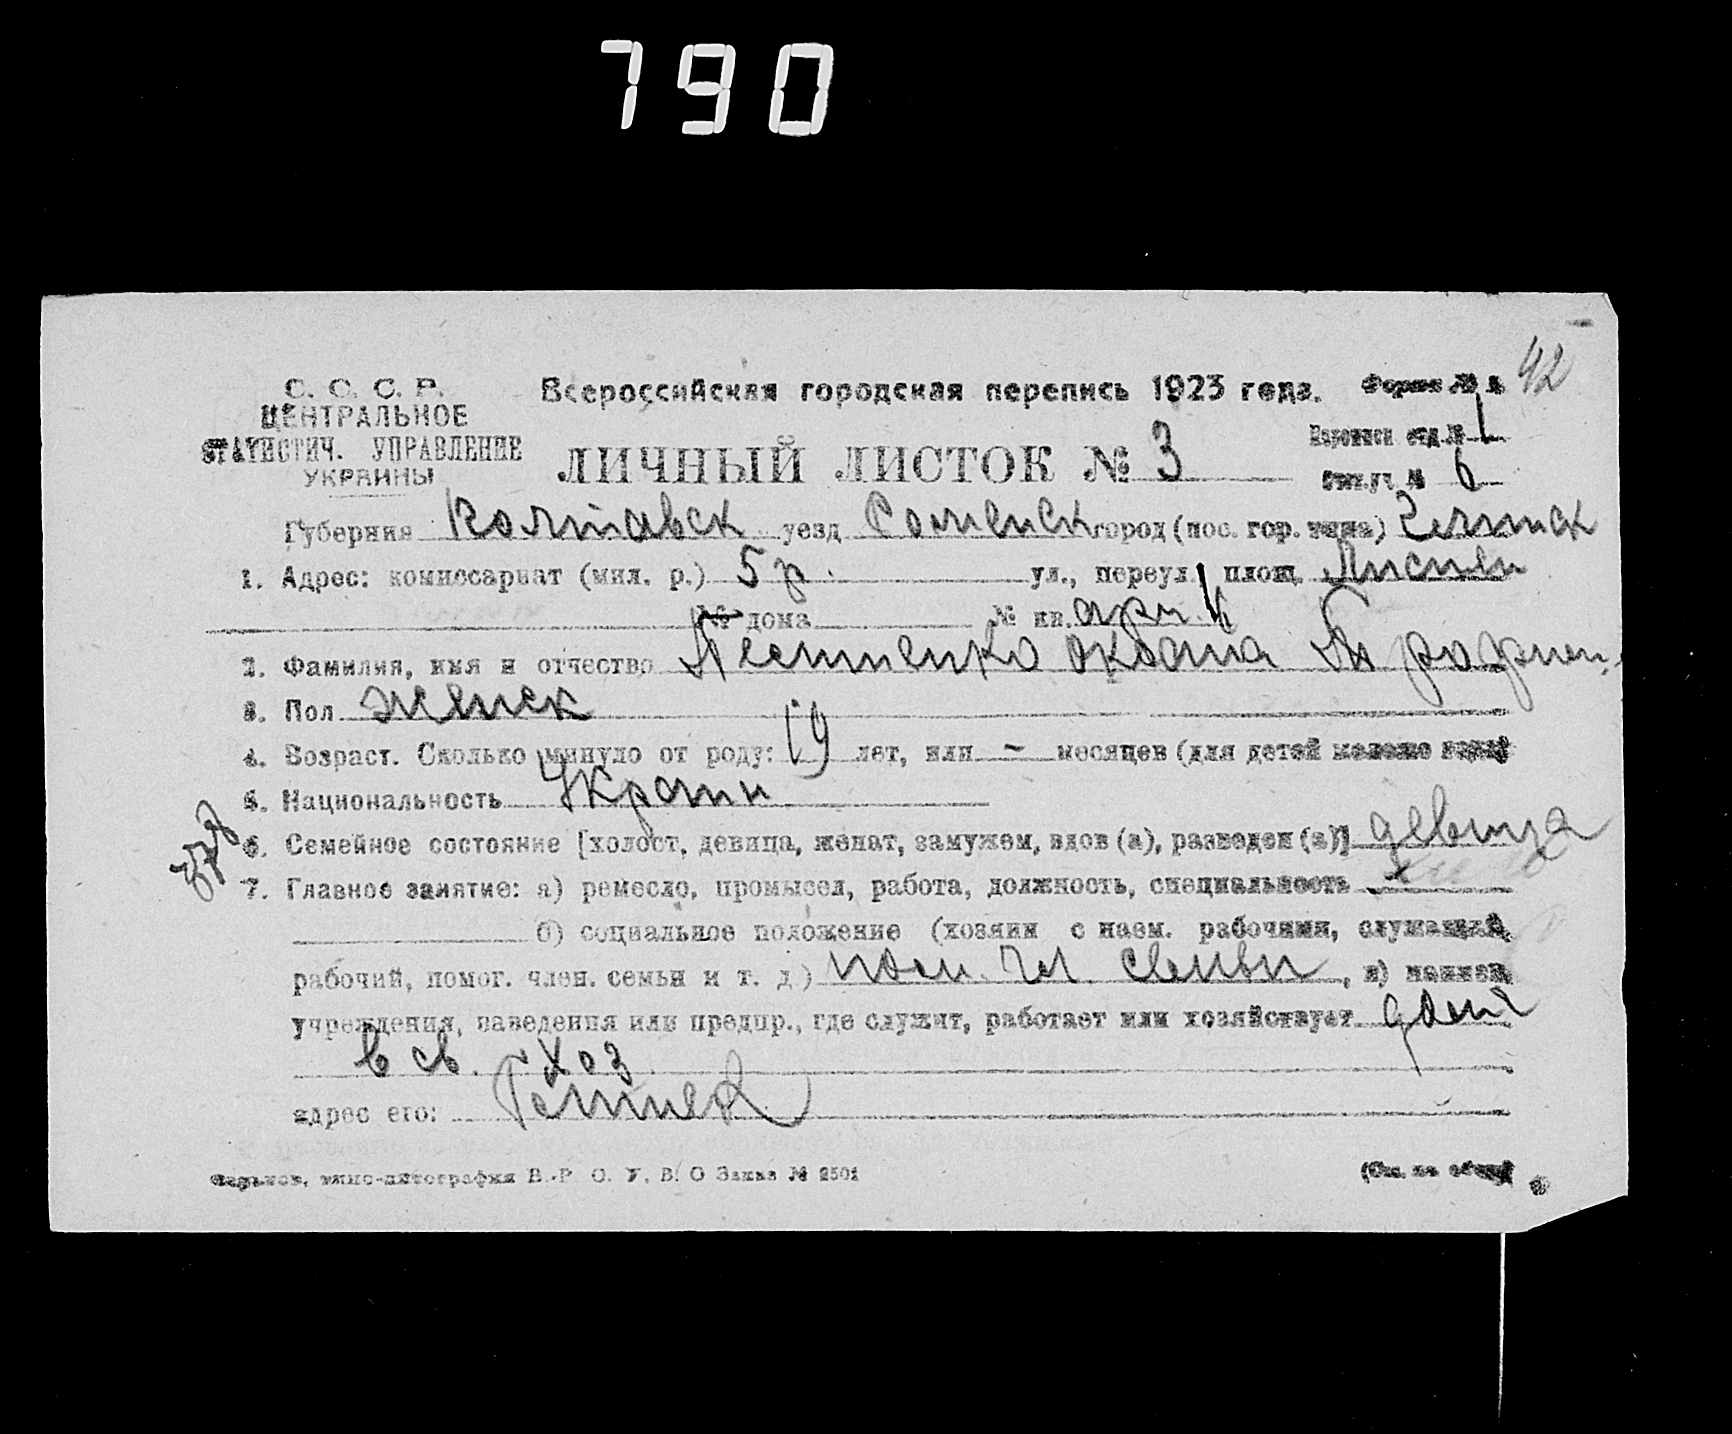 790
42
С. С. С. Р.
ЦЕНТРАЛЬНОЕ
СТАТИСТИЧ. УПРАВЛЕНИЕ
УКРАИНЫ
Всероссийская городская перепись 1923 года.
ЛИЧНЫЙ ЛИСТОК № 3
Переписн отд. № 1
Счетн. уч. № 6
Губерния Полтавск уезд Роменск город (пос. гор. типа)
1. Адрес: комиссариат (мил. р.) 5 р. ул., переул., площ.
№ дома № кв.
2. Фамилия, имя и отчество
3. Пол женск
4. Возраст. Сколько минуло от роду: 19 лет, или – месяцев (для детей моложе года)
5. Национальность Украин
6. Семейное состояние [холост, девица, женат, замужем, вдов (а), разведен (а)] девица
7. Главное занятие: а) ремесло, промысел, работа, должность, специальность
б) социальное положение (хозяин с наем. рабочими, служащий,
рабочий, помог. член. семьи и т. д.) пом. чл. семьи, в) наимен.
учреждения, заведения или предпр., где служит, работает или хозяйствует дома
в св. хоз.
адрес его:
Харьков, типо-литография В.-Р. О. У. В. О Заказ № 2501
(См. на обор.)